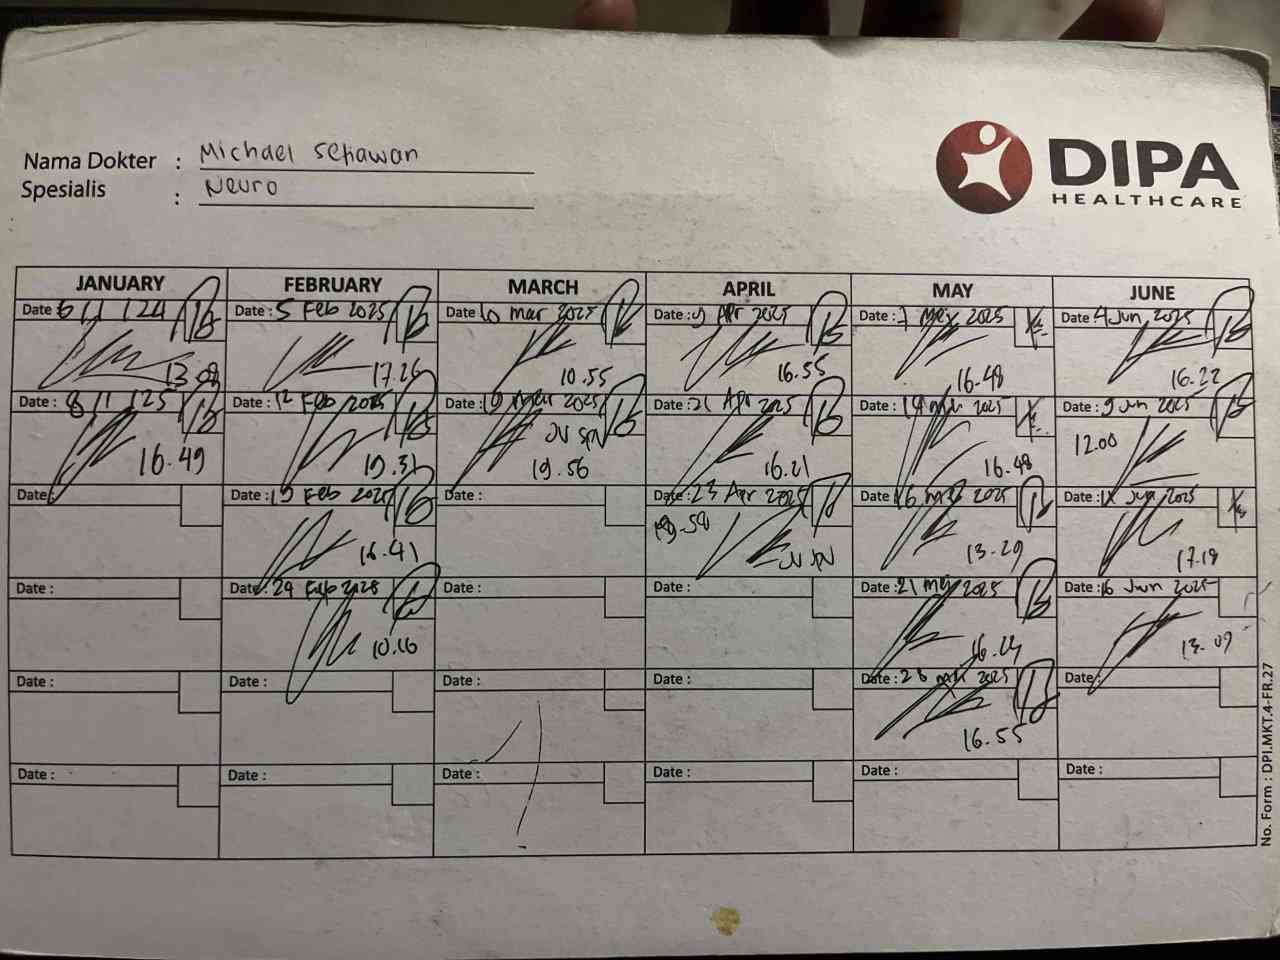 Nama Dokter : Michael Setiawan
Spesialis : Neuro
DIPA
HEALTHCARE
JANUARY FEBRUARY MARCH APRIL MAY JUNE
Date 6/1/24 Date : 5 Feb 2025 Date : 10 mar 2025 Date : 9 Apr 2025 Date : 7 Mei 2025 Date : 4 Jun 2025
17.26 10.55 16.55 16.48 16.22
Date : 8/1/25 Date : 12 Feb 2025 Date : 19 mar 2025 Date : 21 Apr 2025 Date : 14 mei 2025 Date : 9 Jun 2025
16.49 19.31 JV SPN 19.56 16.21 16.48 12.00
Date : Date : 19 Feb 2025 Date : Date : 23 Apr 2025 Date : 16 mei 2025 Date : Jun 2025
16.41 JV SPN 13.29 17.19
Date : Date : 24 Feb 2025 Date : Date : Date : 21 mei 2025 Date : 16 Jun 2025
10.16 13.07
Date : Date : Date : Date : Date : 28 mei 2025 Date :
16.55
Date : Date : Date : Date : Date : Date :
No. Form : DPI.MKT.4-FR.27